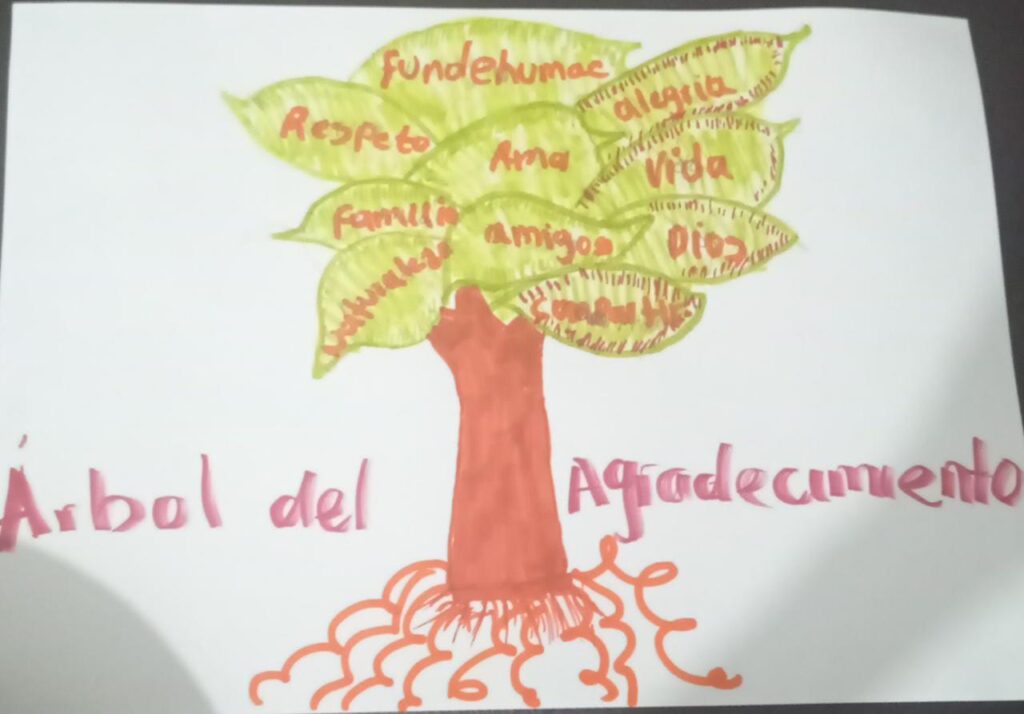 fundehumac
alegria
Respeto
Ama
Vida
Familia
amigos
Dios
naturaleza
Árbol del Agradecimiento